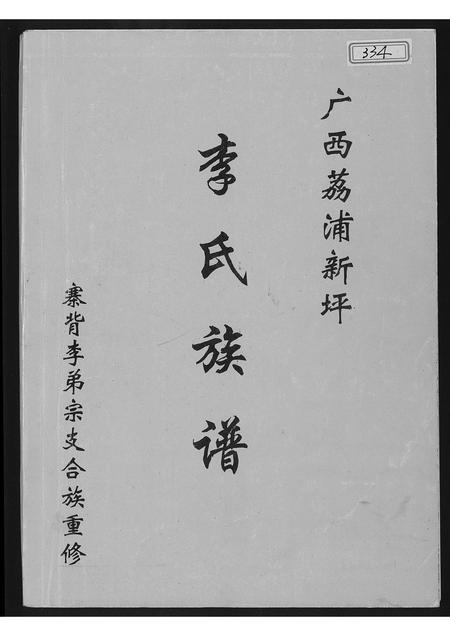 334
广西荔浦新坪
李氏族谱
寨背李弟宗支合族重修